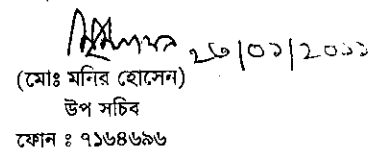 ২৩/০১/২০১১
(মোঃ মনির হোসেন)
উপ সচিব
ফোন ঃ ৭১৬৪৬৯৬